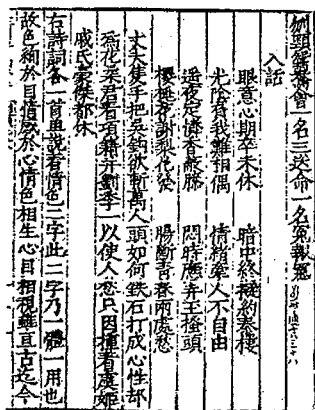 刎頸鴛鴦會一名三送命一名冤報冤
入話
眼意心期卒未休　暗中終擬約秦樓
光陰負我難相偶　情緒牽人不自由
遙夜定憐香蔽膝　悶時應弄玉搔頭
櫻桃花謝梨花發　腸斷青春兩處愁
丈夫隻手把吳鈎欲斬萬人頭如何鉄石打成心性却
為花柔君看項籍并劉季一以使人愁只因撞着虞姬
戚氏豪傑都休
右詩詞各一首單說着情色二字此二字乃一體一用也
故色絢於目情感於心情色相生心目相視雖亘古迄今